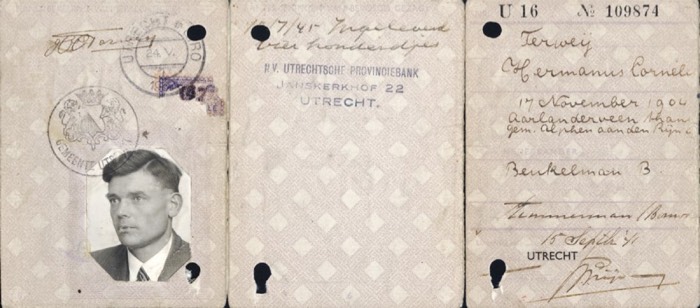 UTRECHT
24 V.
GEMEENTE UTRE
10/7/45 Ingeleverd
vier honderdjes
N.V. UTRECHTSCHE PROVINCIEBANK
JANSKERKHOF 22
UTRECHT.
U 16 № 109874
Terweij
Hermanus Corneli
17 November 1904
Aarlanderveen
Gem. Alphen aan den Rijn
Beukelman B.
Timmerman
15 Sept. 41
UTRECHT